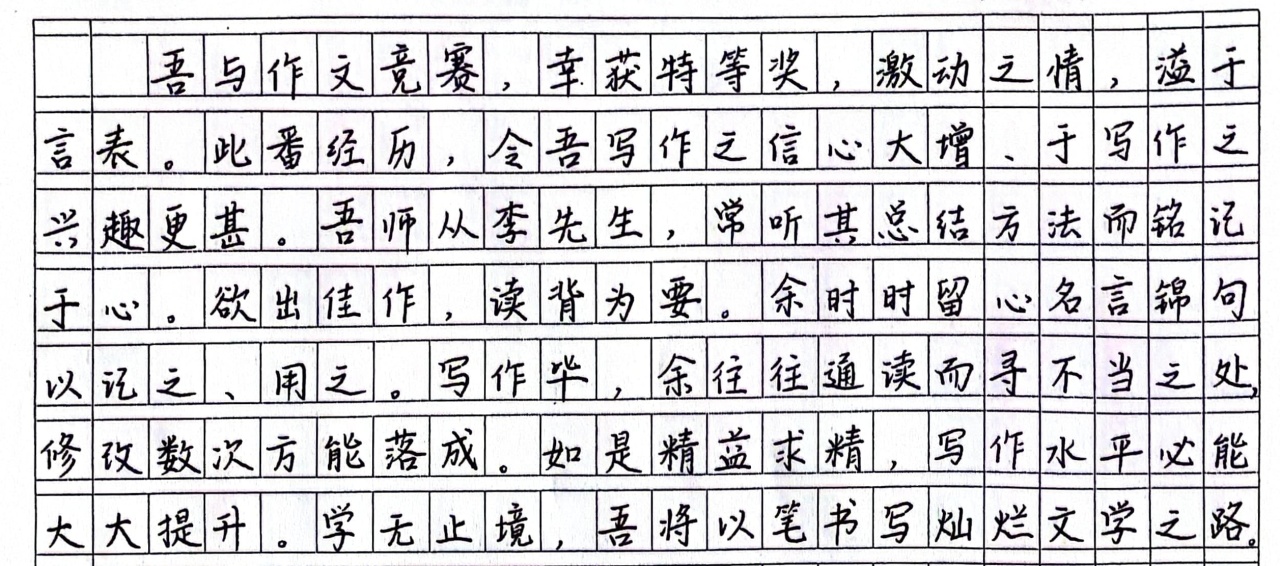 吾与作文竞赛，幸获特等奖，激动之情，溢于
言表。此番经历，令吾写作之信心大增、于写作之
兴趣更甚。吾师从李先生，常听其总结方法而铭记
于心。欲出佳作，读背为要。余时时留心名言锦句
以记之、用之。写作毕，余往往通读而寻不当之处，
修改数次方能落成。如是精益求精，写作水平必能
大大提升。学无止境，吾将以笔书写灿烂文学之路。